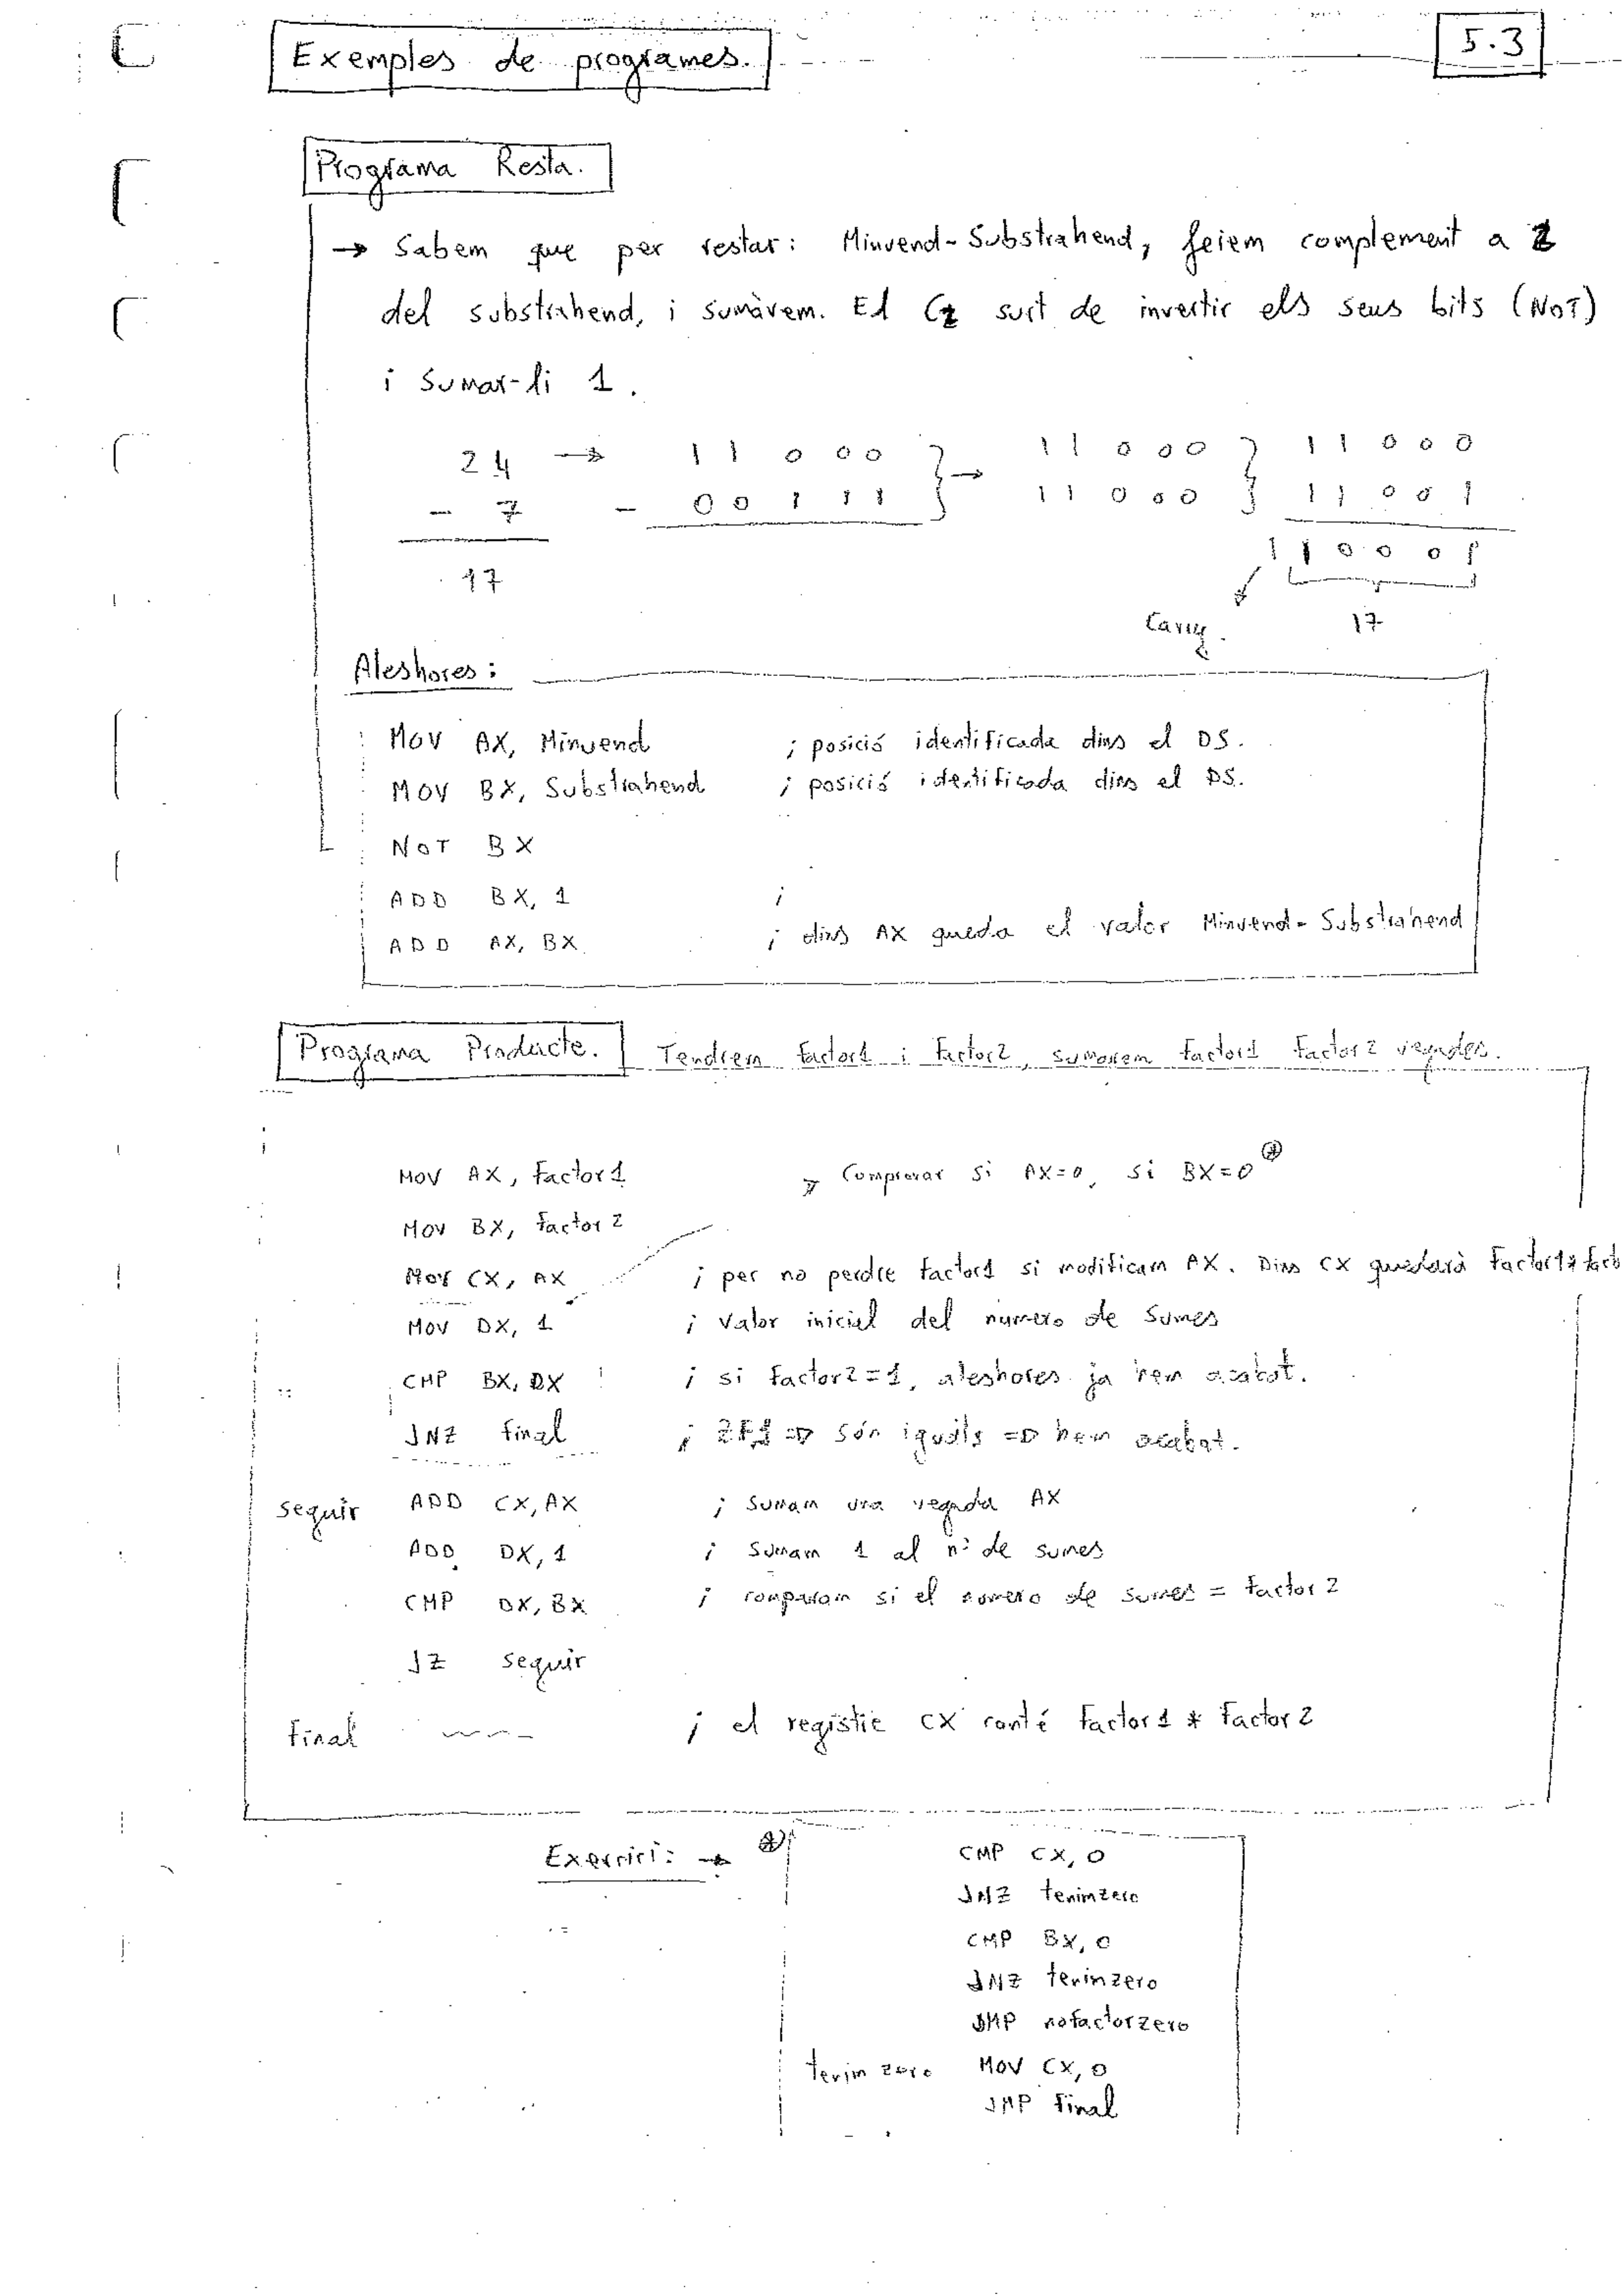 Exemples de programes.
5.3
Programa Resta.
→ Sabem que per restar: Minuend-Substrahend, feiem complement a 2
del substrahend, i sumàvem. El C2 surt de invertir els seus bits (NOT)
i sumar-li 1.
24 → 11000 } → 11000 } 11000
- 7 - 00111 } 11000 } 11001
17 110001
Carry 17
Aleshores:
MOV AX, Minuend ; posició identificada dins el DS.
MOV BX, Substrahend ; posició identificada dins el DS.
NOT BX
ADD BX, 1 ;
ADD AX, BX ; dins AX queda el valor Minuend-Substrahend
Programa Producte. Tendrem factor1 i factor2, sumarem factor1 factor2 vegades.
MOV AX, factor1 Comprovar si AX=0, si BX=0
MOV BX, factor2
MOV CX, AX ; per no perdre factor1 si modificam AX. Dins CX quedarà factor1*fact
MOV DX, 1 ; Valor inicial del numero de sumes
CMP BX, DX ; si factor2=1, aleshores ja hem acabat.
JNZ final ; són iguals => hem acabat.
seguir ADD CX, AX ; Sumam una vegada AX
ADD DX, 1 ; Sumam 1 al nº de sumes
CMP DX, BX ; comparam si el numero de sumes = factor2
JZ seguir
final ; el registre CX conté factor1 * factor2
Exercici: →
CMP CX, 0
JNZ tenimzero
CMP BX, 0
JNZ tenimzero
JMP nofactorzero
tenimzero MOV CX, 0
JMP final